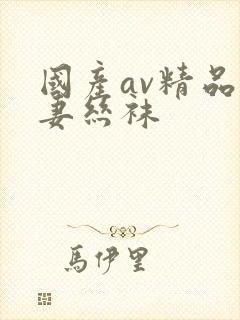 國產av精品
妻絲襪
馬伊里